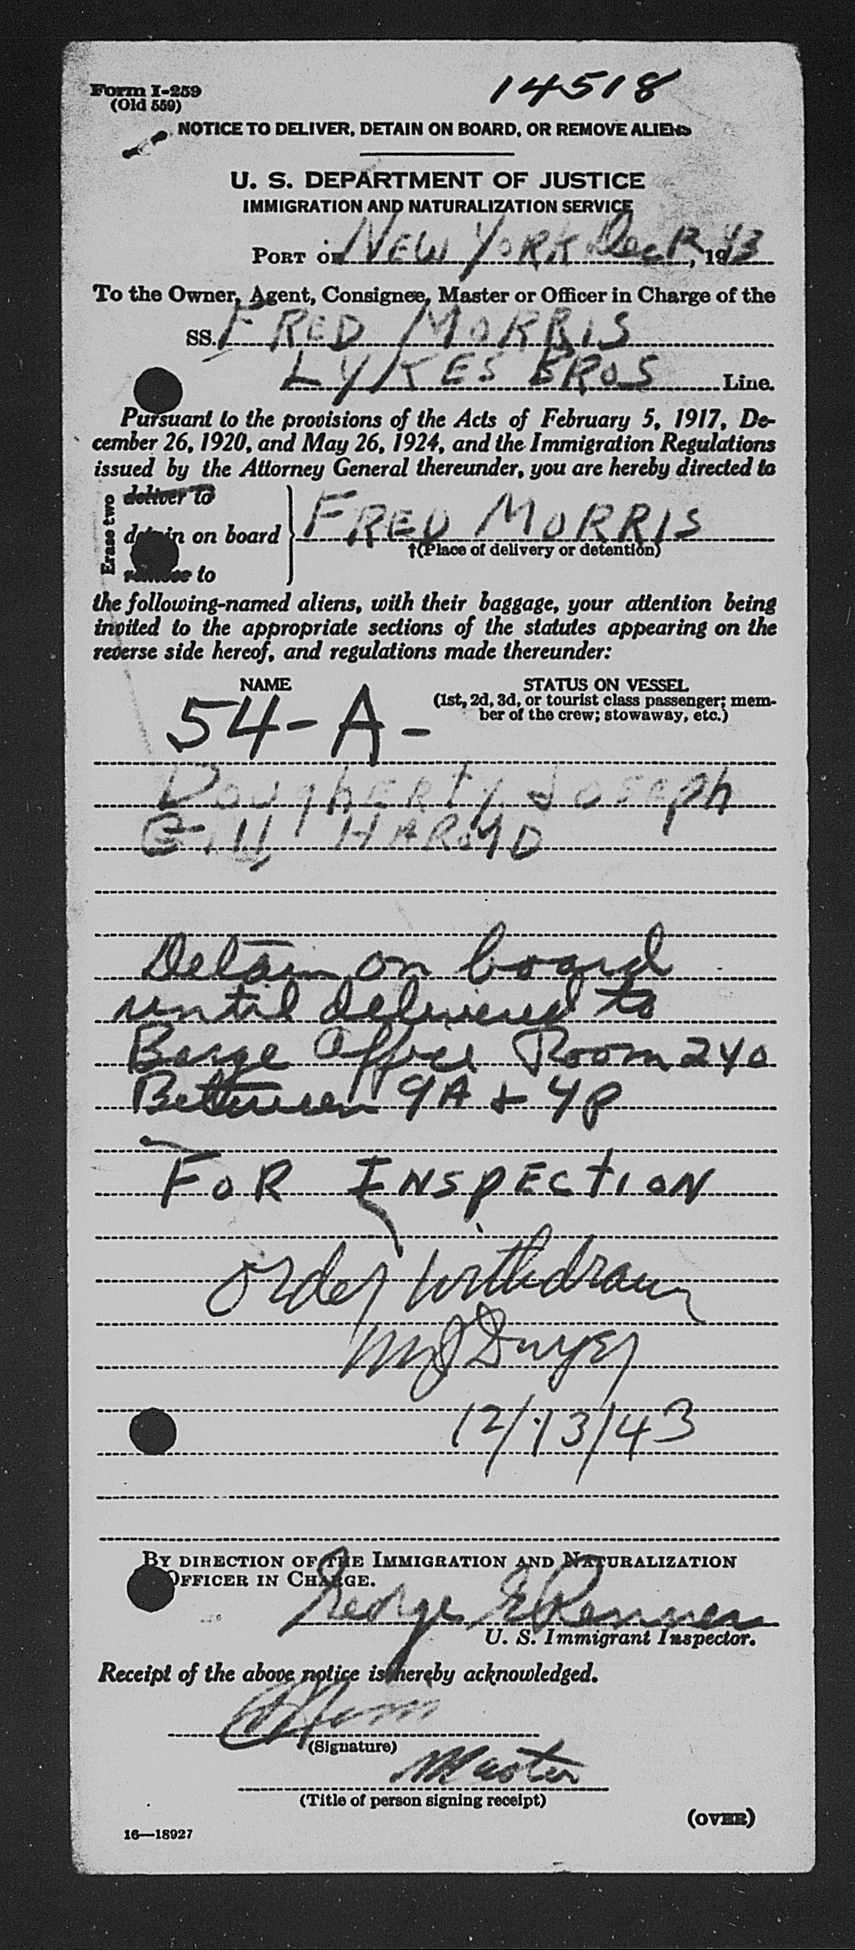 Form I-259
(Old 559)
14518
NOTICE TO DELIVER, DETAIN ON BOARD, OR REMOVE ALIENS
U. S. DEPARTMENT OF JUSTICE
IMMIGRATION AND NATURALIZATION SERVICE
PORT OF NEW YORK Dec 12, 1943
To the Owner, Agent, Consignee, Master or Officer in Charge of the
SS. FRED MORRIS
LYKES BROS Line.
Pursuant to the provisions of the Acts of February 5, 1917, De-
cember 26, 1920, and May 26, 1924, and the Immigration Regulations
issued by the Attorney General thereunder, you are hereby directed to
Erase two
deliver to
detain on board
remove to
FRED MORRIS
†(Place of delivery or detention)
the following-named aliens, with their baggage, your attention being
invited to the appropriate sections of the statutes appearing on the
reverse side hereof, and regulations made thereunder:
NAME
STATUS ON VESSEL
(1st, 2d, 3d, or tourist class passenger; mem-
ber of the crew; stowaway, etc.)
54-A-
DougHERTY, JosEpH
Gill HAROLD
Detain on board
until delivered to
Barge Office Room 240
Between 9A + 4P
FOR INSPECTION
Order Withdrawn
MJ Dwyer
12/13/43
BY DIRECTION OF THE IMMIGRATION AND NATURALIZATION
OFFICER IN CHARGE.
George E Renner
U. S. Immigrant Inspector.
Receipt of the above notice is hereby acknowledged.
(Signature)
Master
(Title of person signing receipt)
(OVER)
16—18927